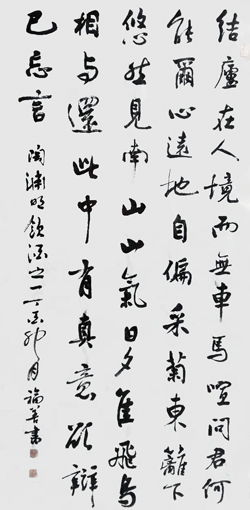 結廬在人境而無車馬喧問君何
能爾心遠地自偏采菊東籬下
悠然見南山山氣日夕佳飛鳥
相与還此中有真意欲辯
已忘言 陶淵明飲酒之一 月 福善書